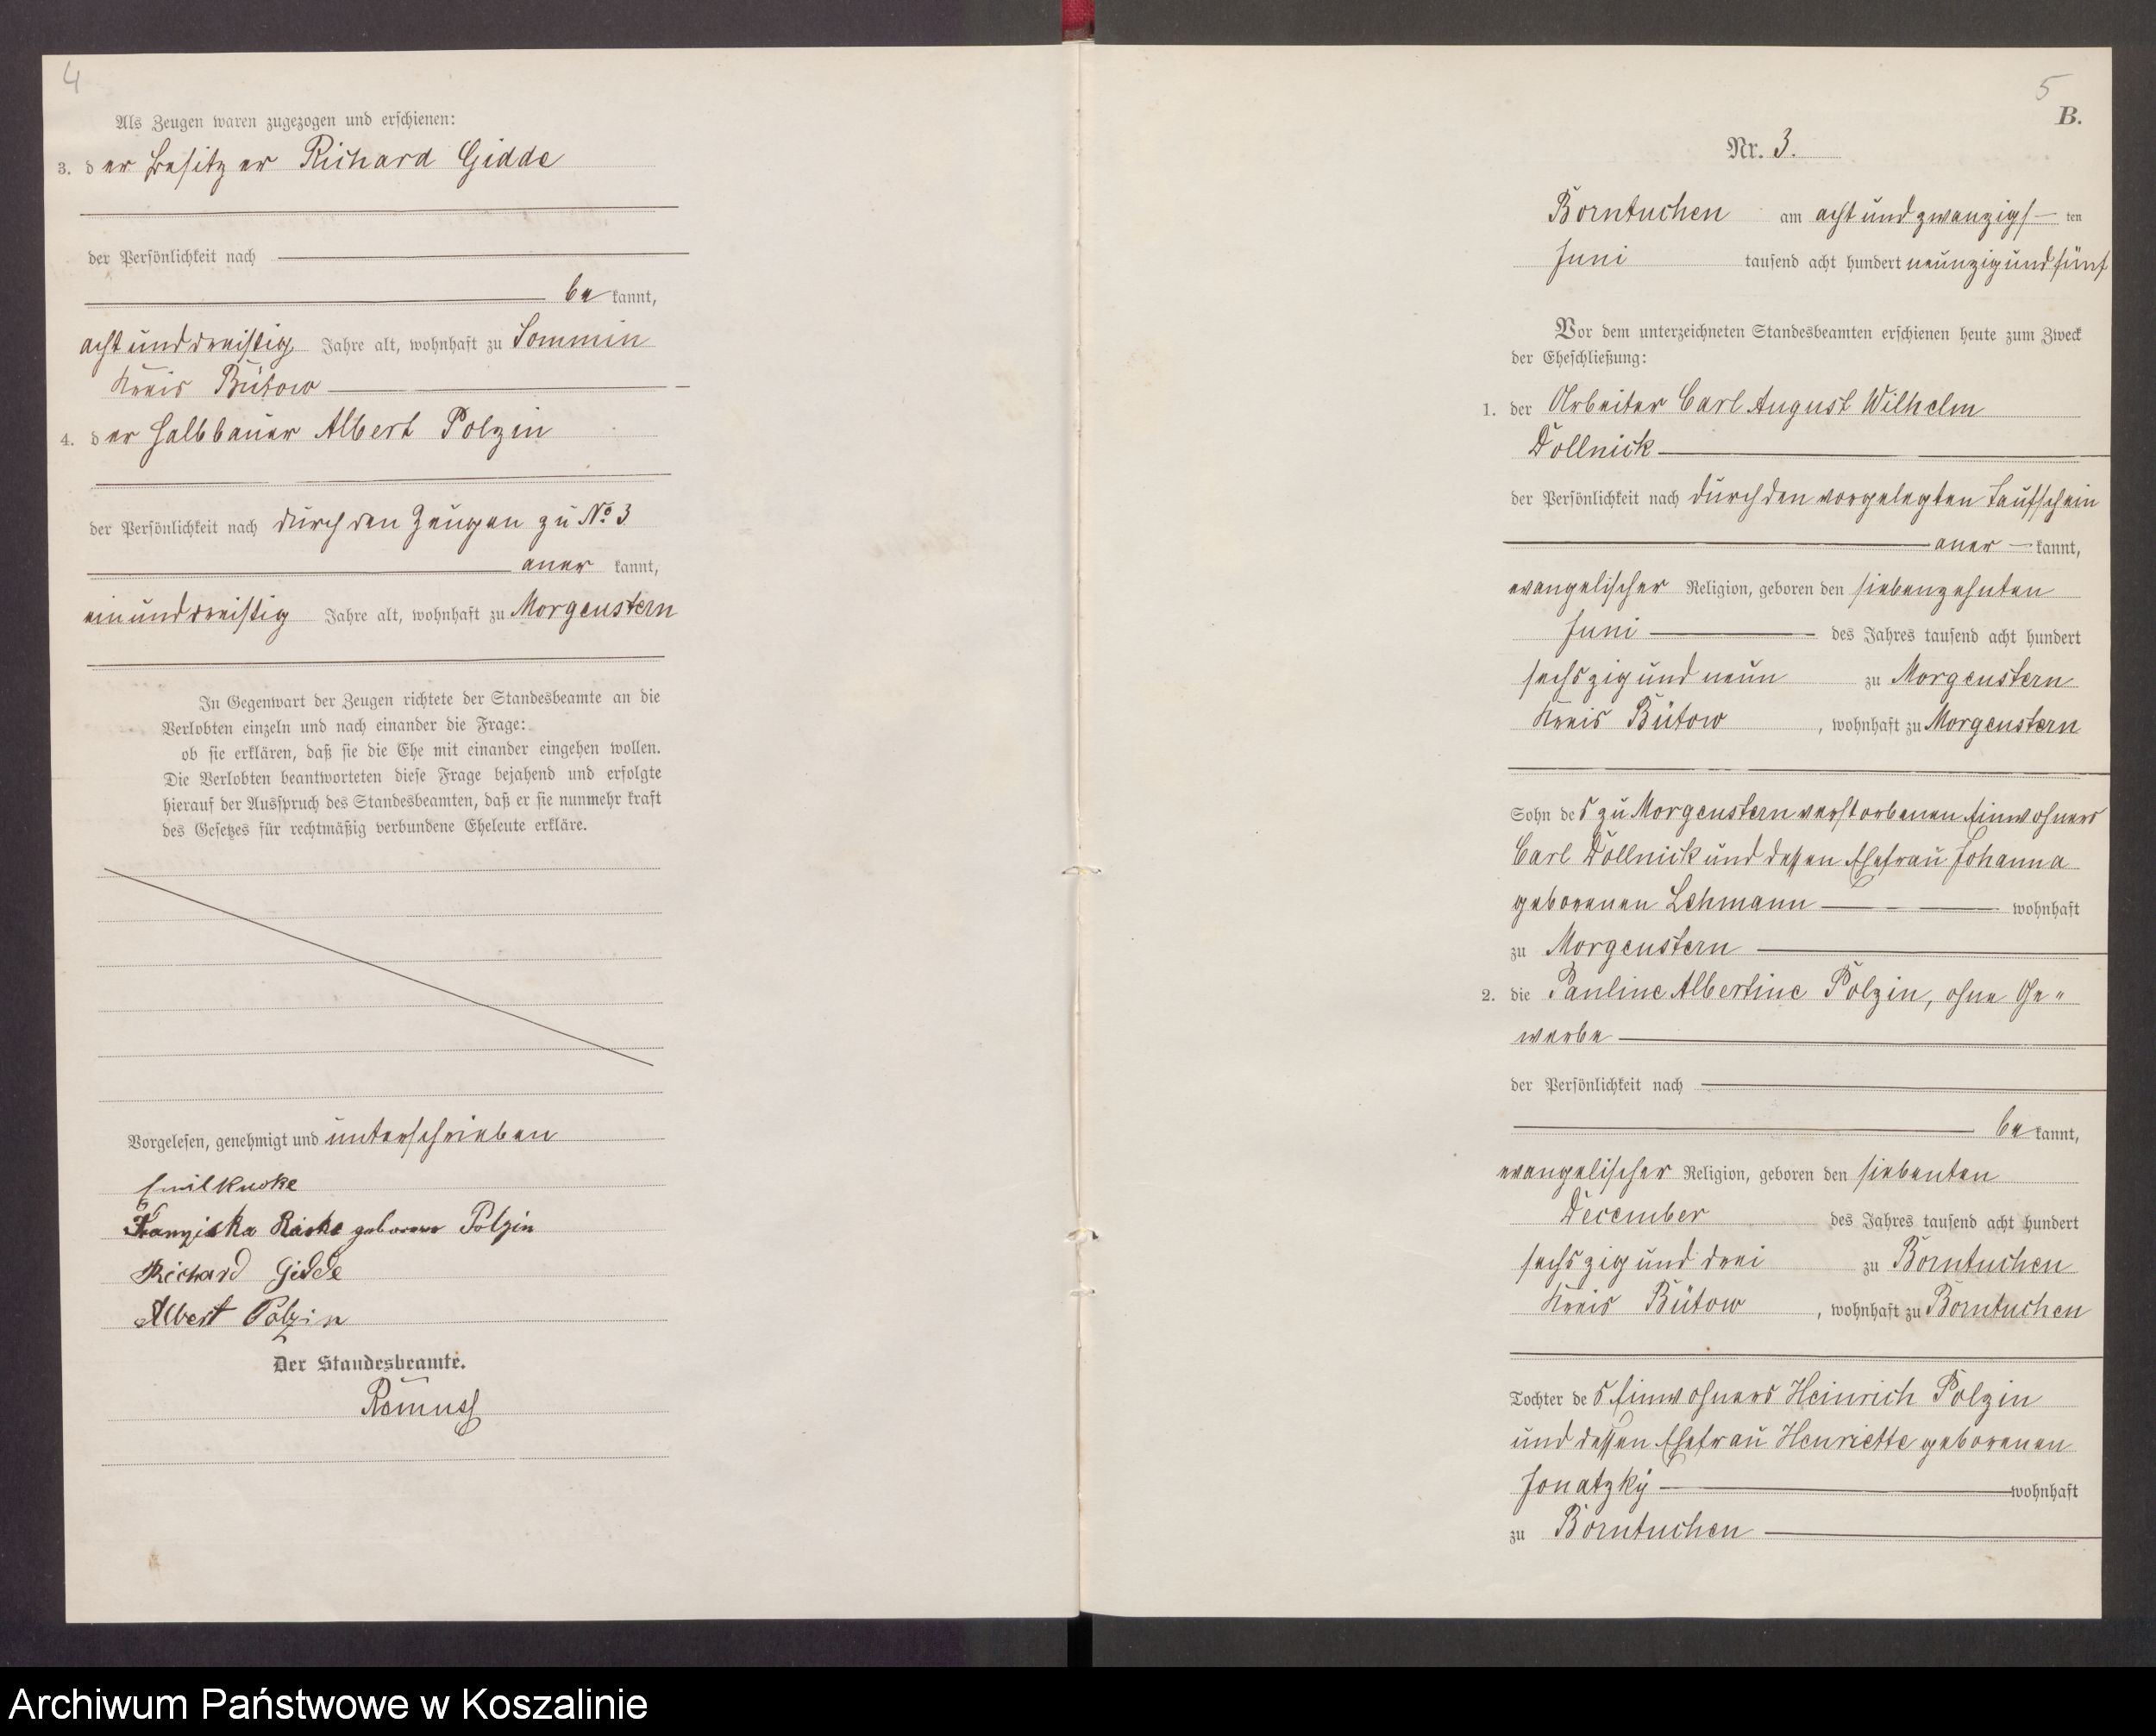 4
Als Zeugen waren zugezogen und erschienen:
3. der Besitzer Richard Gidde
der Persönlichkeit nach
bekannt,
acht und dreißig Jahre alt, wohnhaft zu Sommin
Kreis Bütow
4. der Halbbauer Albert Polzin
der Persönlichkeit nach durch den Zeugen zu No 3
anerkannt,
ein und dreißig Jahre alt, wohnhaft zu Morgenstern
In Gegenwart der Zeugen richtete der Standesbeamte an die
Verlobten einzeln und nach einander die Frage:
ob sie erklären, daß sie die Ehe mit einander eingehen wollen.
Die Verlobten beantworteten diese Frage bejahend und erfolgte
hierauf der Ausspruch des Standesbeamten, daß er sie nunmehr kraft
des Gesetzes für rechtmäßig verbundene Eheleute erkläre.
Vorgelesen, genehmigt und unterschrieben
Emil
Franziska geborene Polzin
Richard Gidde
Albert Polzin
Der Standesbeamte.
5
B.
Nr. 3.
Borntuchen am acht und zwanzigsten
Juni tausend acht hundert neunzig und fünf
Vor dem unterzeichneten Standesbeamten erschienen heute zum Zweck
der Eheschließung:
1. der Arbeiter Carl August Wilhelm
Dollnick
der Persönlichkeit nach durch den vorgelegten Taufschein
anerkannt,
evangelischer Religion, geboren den siebenzehnten
Juni des Jahres tausend acht hundert
sechszig und neun zu Morgenstern
Kreis Bütow, wohnhaft zu Morgenstern
Sohn des zu Morgenstern verstorbenen Einwohners
Carl Dollnick und dessen Ehefrau Johanna
geborenen Lehmann wohnhaft
zu Morgenstern
2. die Pauline Albertine Polzin, ohne Ge-
werbe
der Persönlichkeit nach
bekannt,
evangelischer Religion, geboren den siebenten
December des Jahres tausend acht hundert
sechszig und drei zu Borntuchen
Kreis Bütow, wohnhaft zu Borntuchen
Tochter des Einwohners Heinrich Polzin
und dessen Ehefrau Henriette geborenen
Jonatzky wohnhaft
zu Borntuchen
Archiwum Państwowe w Koszalinie